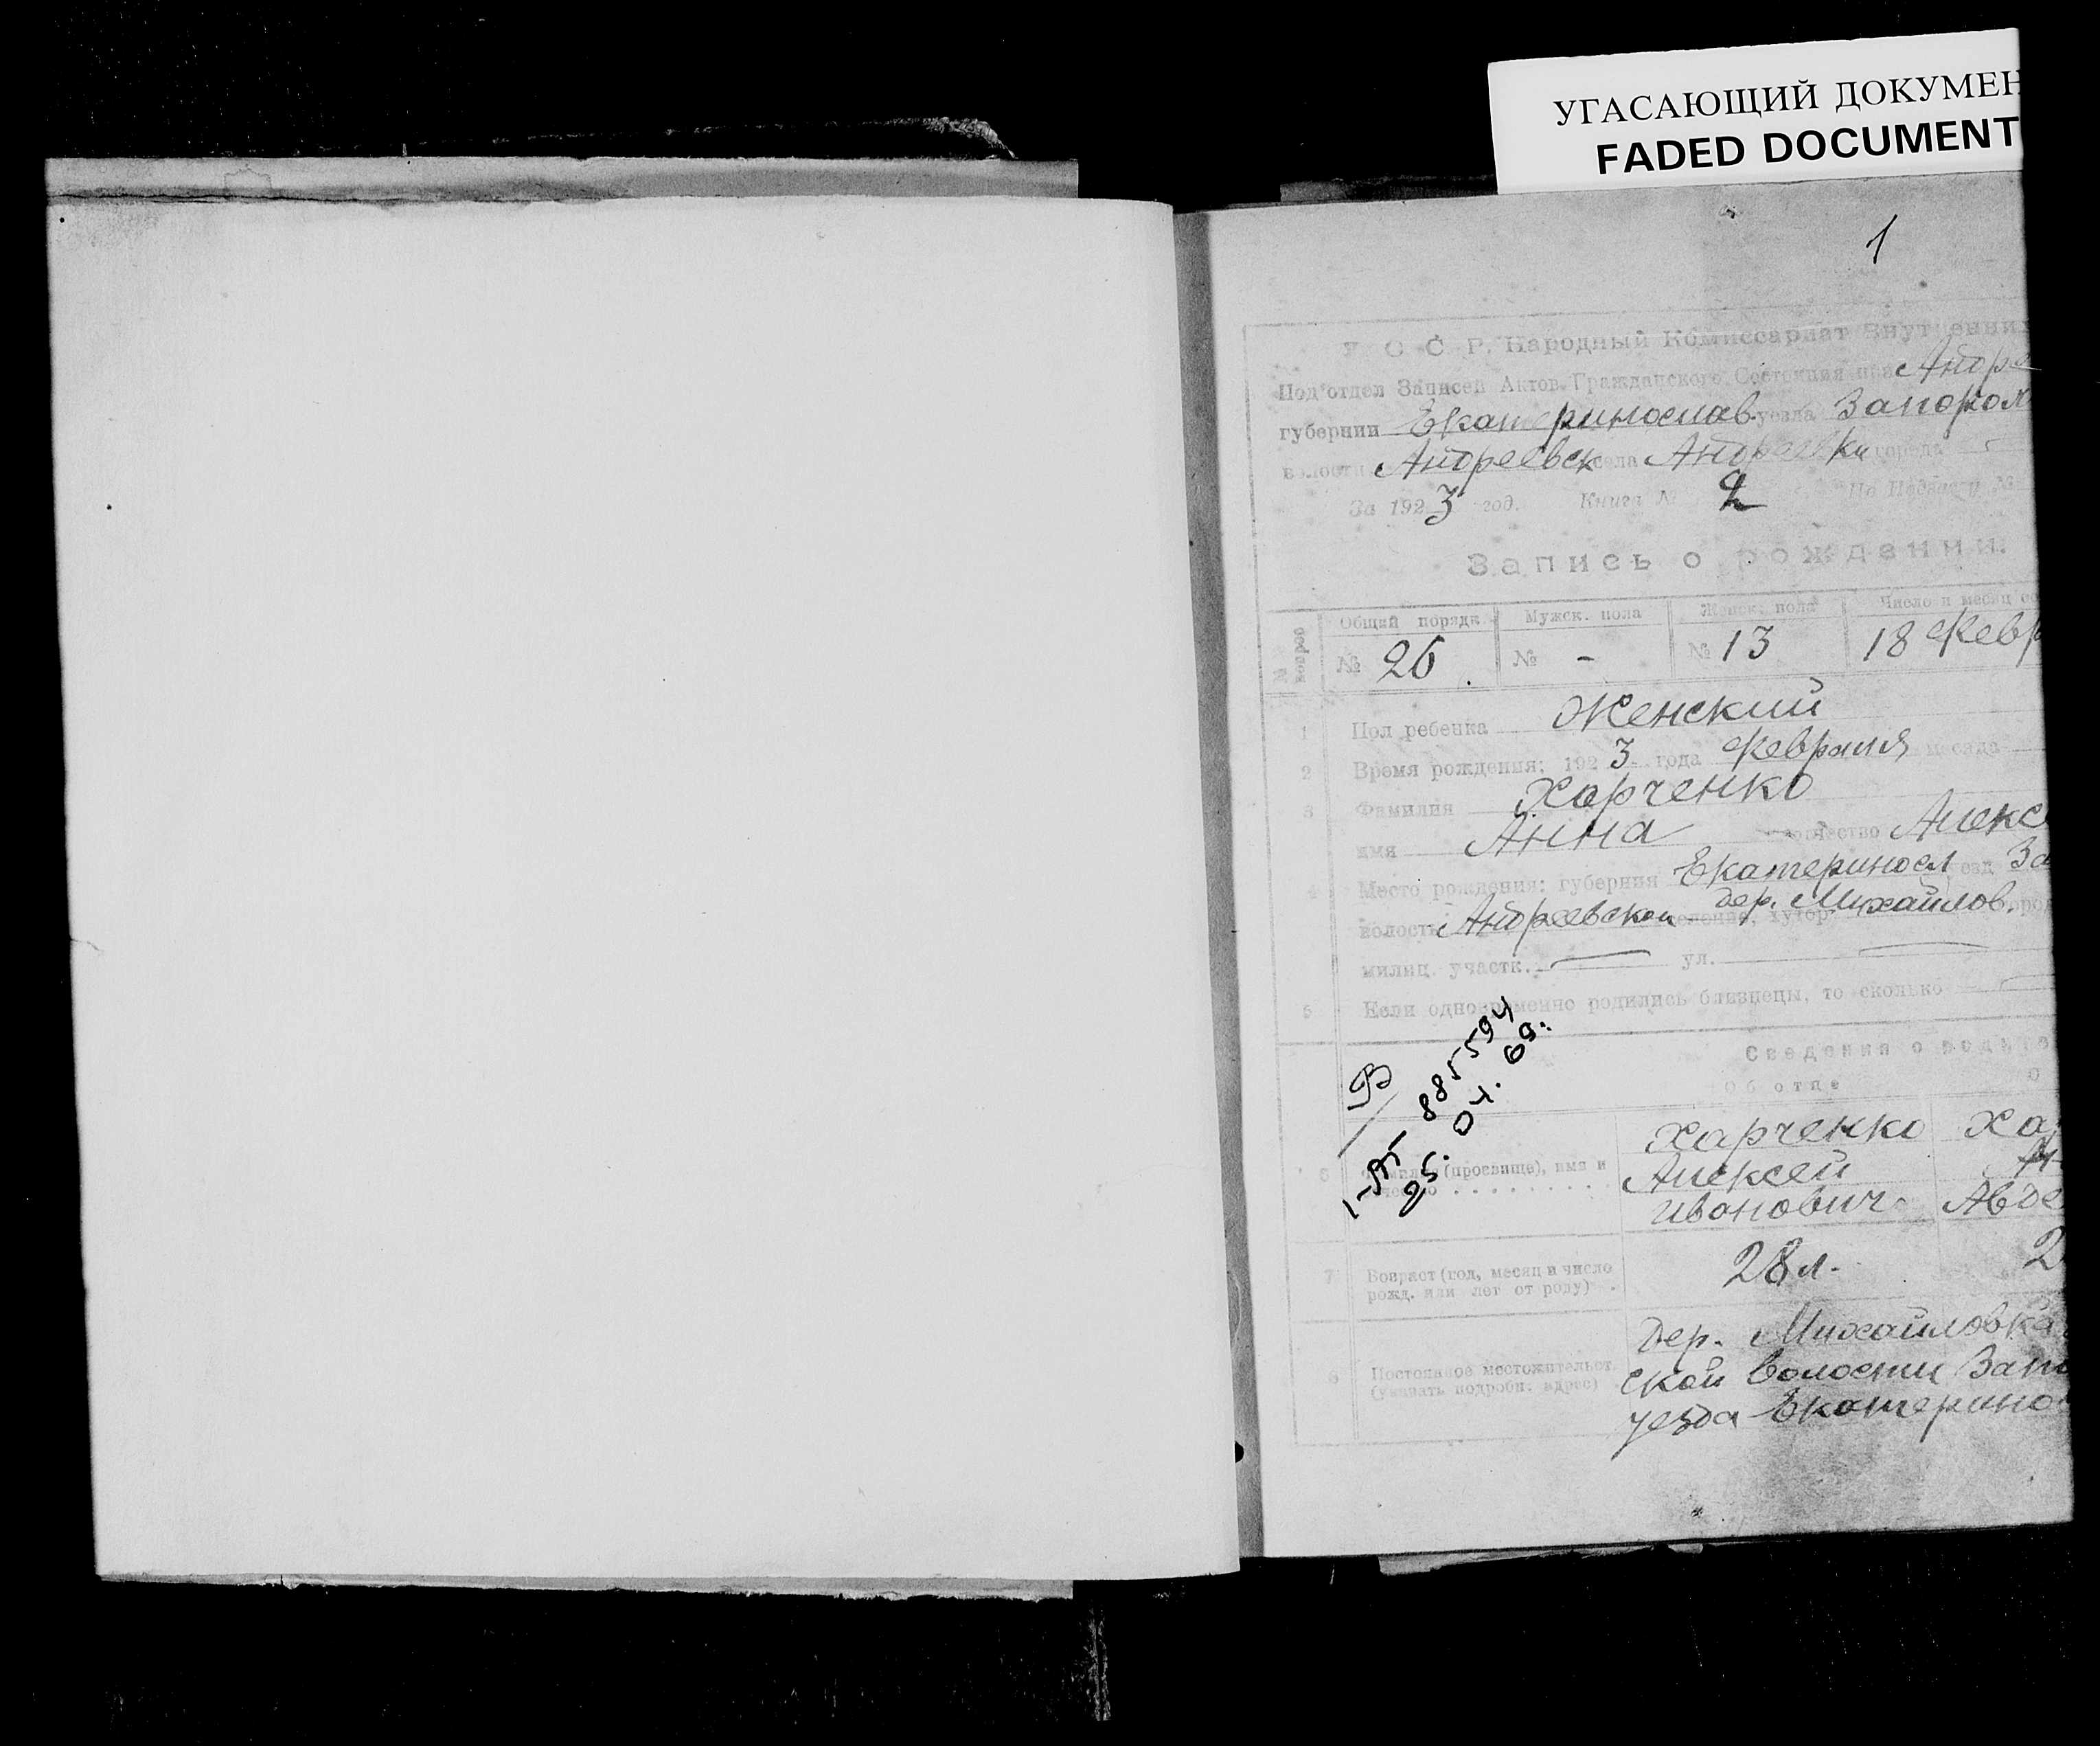 УГАСАЮЩИЙ ДОКУМЕН
FADED DOCUMENT
1
У. С. С. Р. Народный Комиссариат Внутренних
Под'отдел Записей Актов Гражданского Состояния при Андре
губернии Екатеринослав. уезда Запорож
волости Андреевск села Андреевки города
За 1923 год. Книга № 2 По Несвести №
Запись о рождении.
№ вопрос Общий порядк. Мужск. пола Женск. пола Число и месяц со
№ 26 № - № 13 18 Февр
1 Пол ребенка Женский
2 Время рождения: 1923 года Февраля месяца
3 Фамилия Харченко
имя Анна отчество Алекс
4 Место рождения: губерния Екатериносл уезд За
волость Андреевской селение, хутор дер. Михайлов. город
милиц. участк. ул.
5 Если одновременно родились близнецы, то сколько
Сведения о родите
Об отце О
В
1-ЯГ 885594
25. 04. 69.
6 Фамилия (прозвище), имя и отчество Харченко Алексей Иванович Ха Авде
7 Возраст (год, месяц и число рожд. или лет от роду) 28 л. 2
8 Постоянное местожительст. (указать подробн. адрес) Дер. Михайловка
ской волости Запо
уезда Екатерино